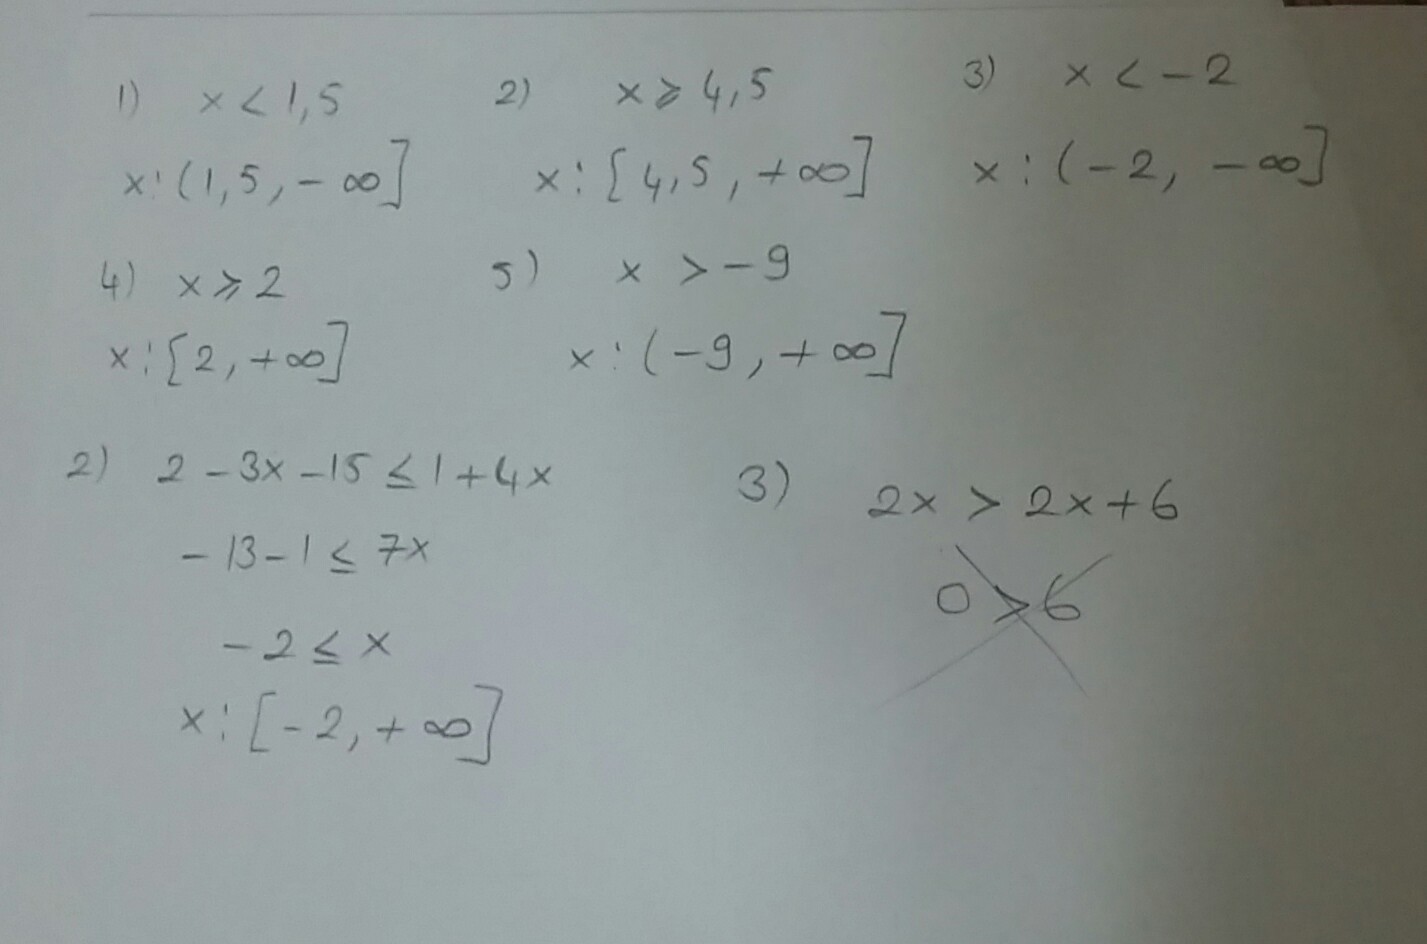 1) x < 1,5
x: (1,5, - ∞]
2) x ⩾ 4,5
x: [4,5, +∞]
3) x < -2
x: (-2, -∞]
4) x ⩾ 2
x: [2, +∞]
5) x > -9
x: (-9, + ∞]
2) 2 - 3x - 15 ≤ 1 + 4x
- 13 - 1 ≤ 7x
- 2 ≤ x
x: [-2, + ∞]
3) 2x > 2x + 6
0 > 6